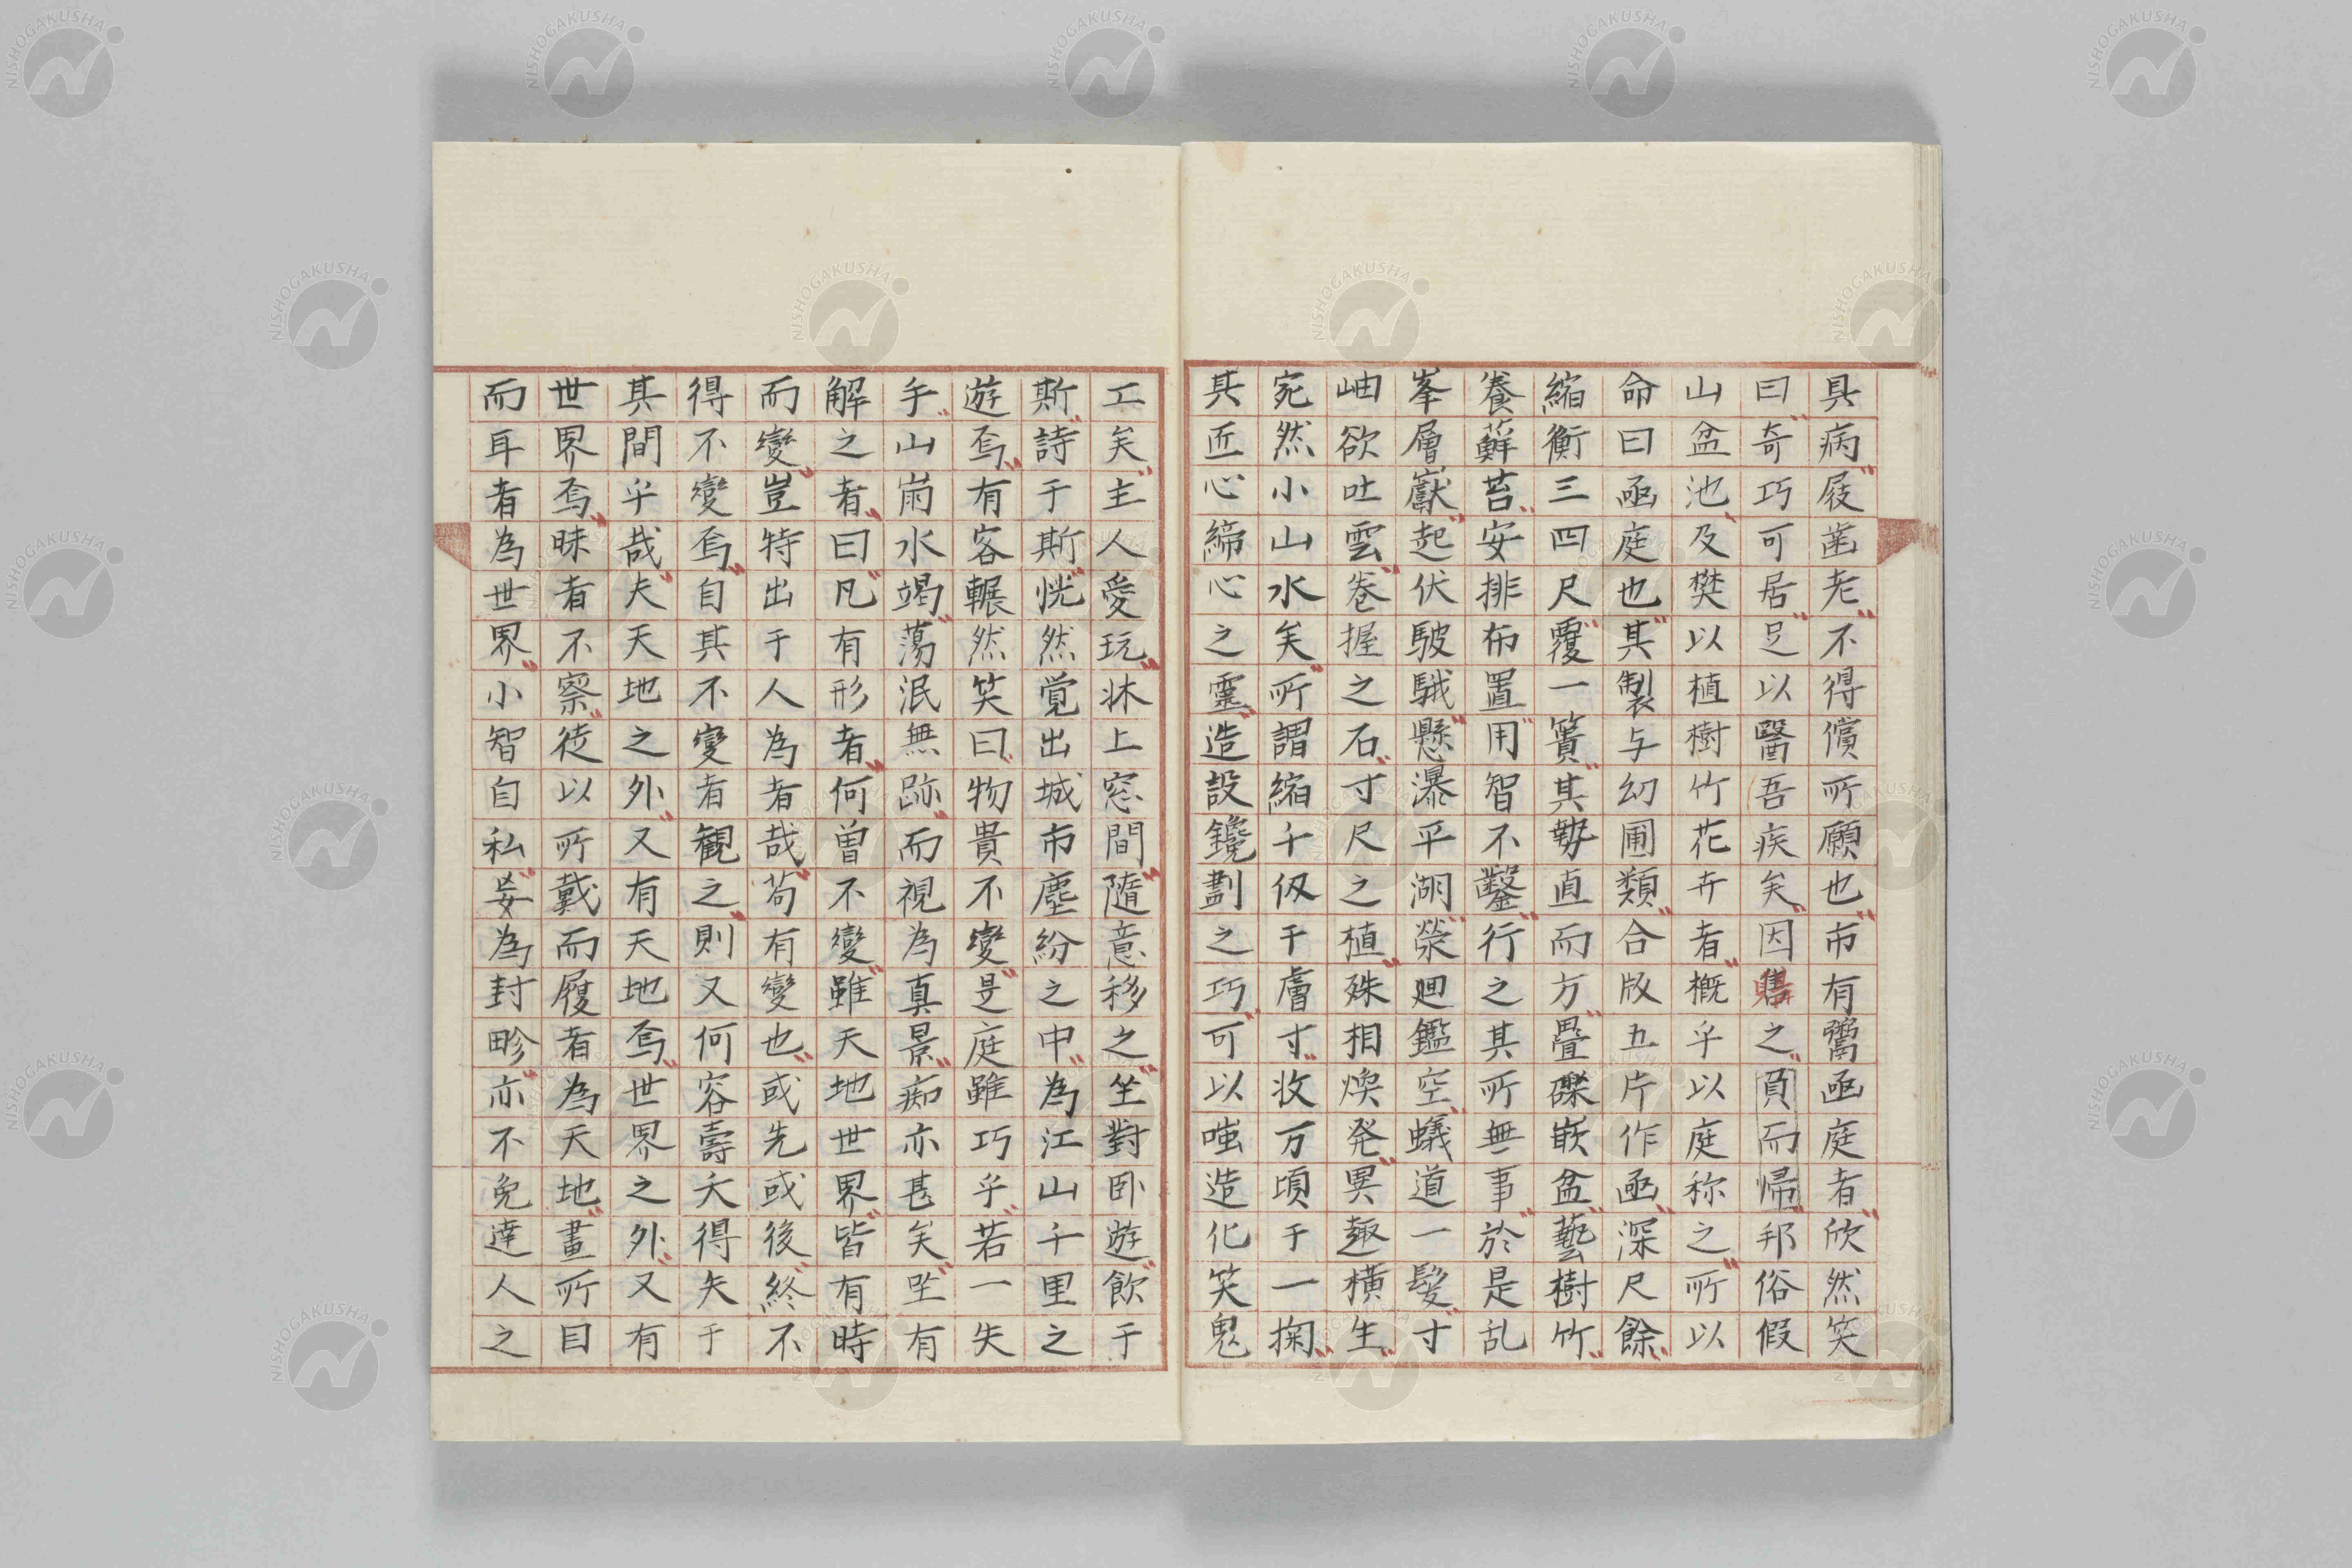 具病屐歯老不得償所願也市有鬻凾庭者欣然笑
曰奇巧可居足以醫吾疾矣因售之負而帰邦俗假
山盆池及樊以植樹竹花卉者概乎以庭称之所以
命曰凾庭也其製与幻圃類合版五片作凾深尺餘
縮衡三四尺覆一簣其勢直而方疊礫嵌盆藝樹竹
養蘚苔安排布置用智不鑿行之其所無事於是乱
峯層巘起伏駊騀懸瀑平湖濙廻鑑空蟻道一髮寸
岫欲吐雲巻握之石寸尺之植殊相煥発異趣横生
宛然小山水矣所謂縮千仭于膚寸收万頃于一掬
其匠心締心之靈造設鑱劃之巧可以嗤造化笑鬼
工矣主人愛玩牀上窓間随意移之坐對卧遊飲于
斯詩于斯恍然覚出城市塵紛之中為江山千里之
遊焉有客輾然笑曰物貴不變是庭雖巧乎若一失
手山崩水竭蕩泯無跡而視為真景痴亦甚矣坐有
解之者曰凡有形者何曽不變雖天地世界皆有時
而變豈特出于人為者哉苟有變也或先或後終不
得不變焉自其不變者観之則又何容壽夭得失于
其間乎哉夫天地之外又有天地焉世界之外又有
世界焉昧者不察徒以所戴而履者為天地畫所目
而耳者為世界小智自私妄為封畛亦不免達人之